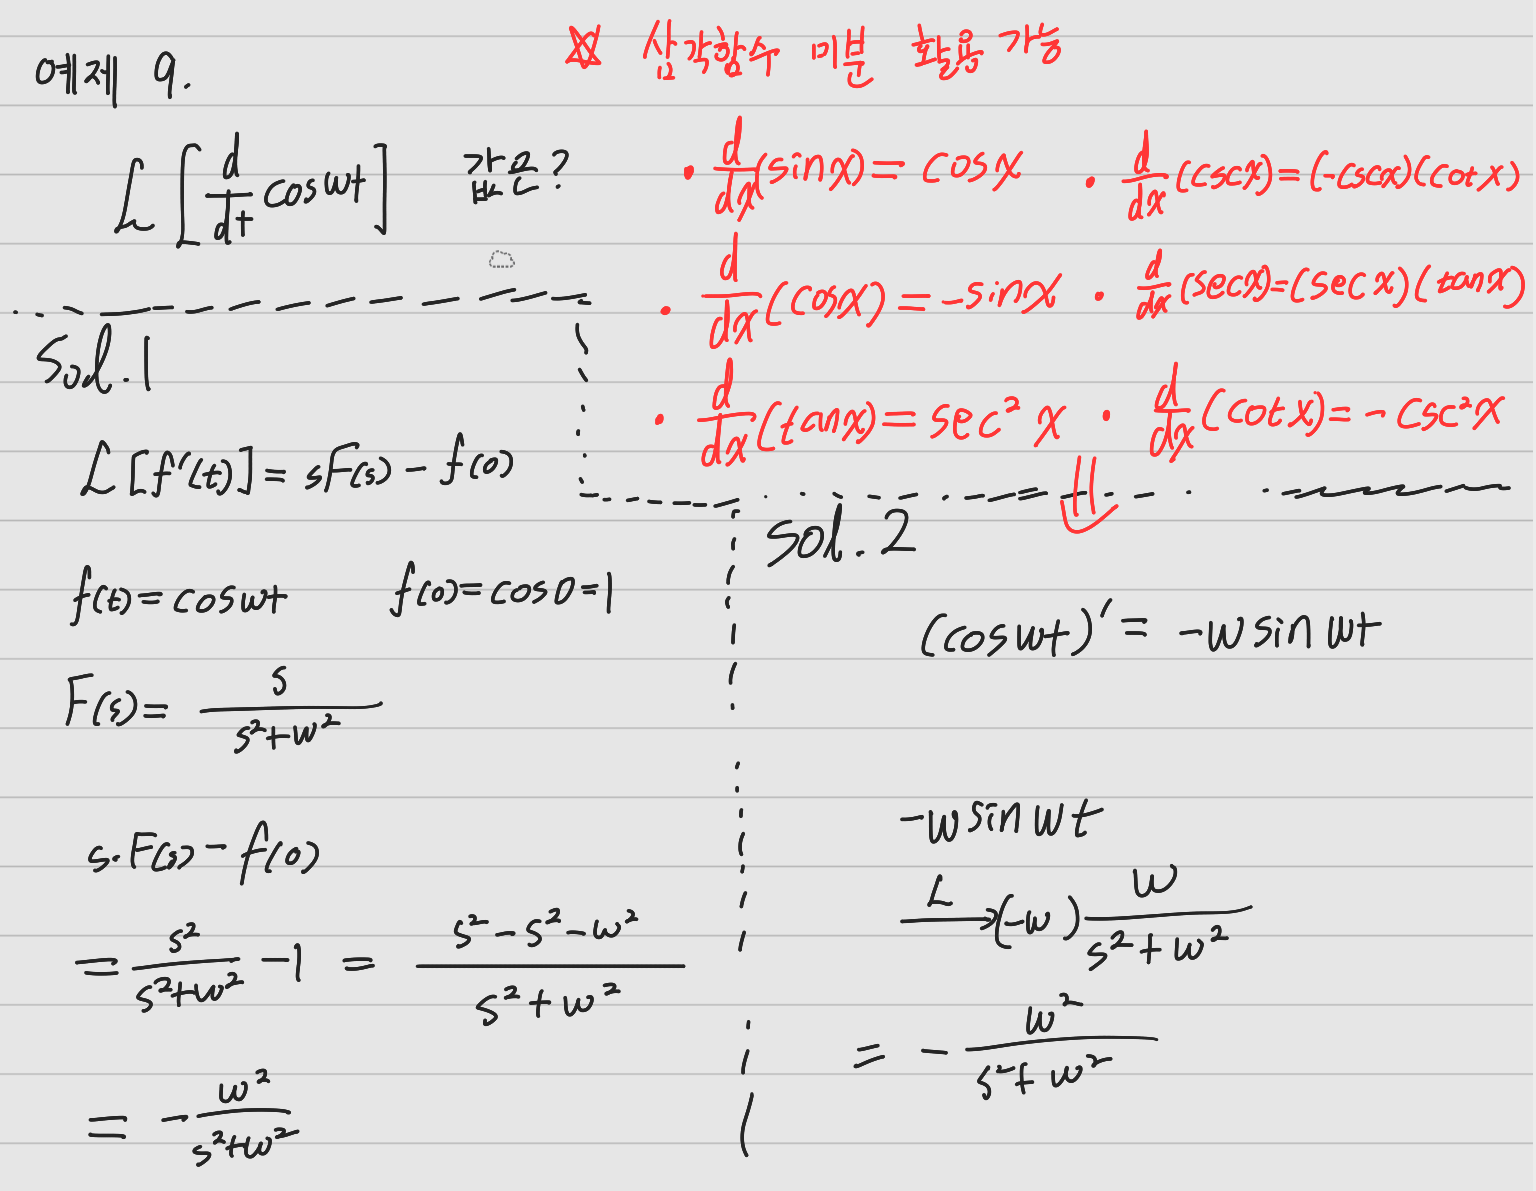 예제 9.
☆ 삼각함수 미분 활용 가능
L [d/dt cos wt] 값은?
· d/dx (sin x) = cos x
· d/dx (csc x) = (-csc x)(cot x)
· d/dx (cos x) = -sin x
· d/dx (sec x) = (sec x)(tan x)
· d/dx (tan x) = sec² x
· d/dx (cot x) = -csc² x
Sol. 1
L [f'(t)] = sF(s) - f(0)
f(t) = cos wt f(0) = cos 0 = 1
F(s) = s/(s²+w²)
s·F(s) - f(0)
= s²/(s²+w²) - 1 = (s²-s²-w²)/(s²+w²)
= -w²/(s²+w²)
Sol. 2
(cos wt)' = -w sin wt
-w sin wt
L→ (-w) w/(s²+w²)
= -w²/(s²+w²)